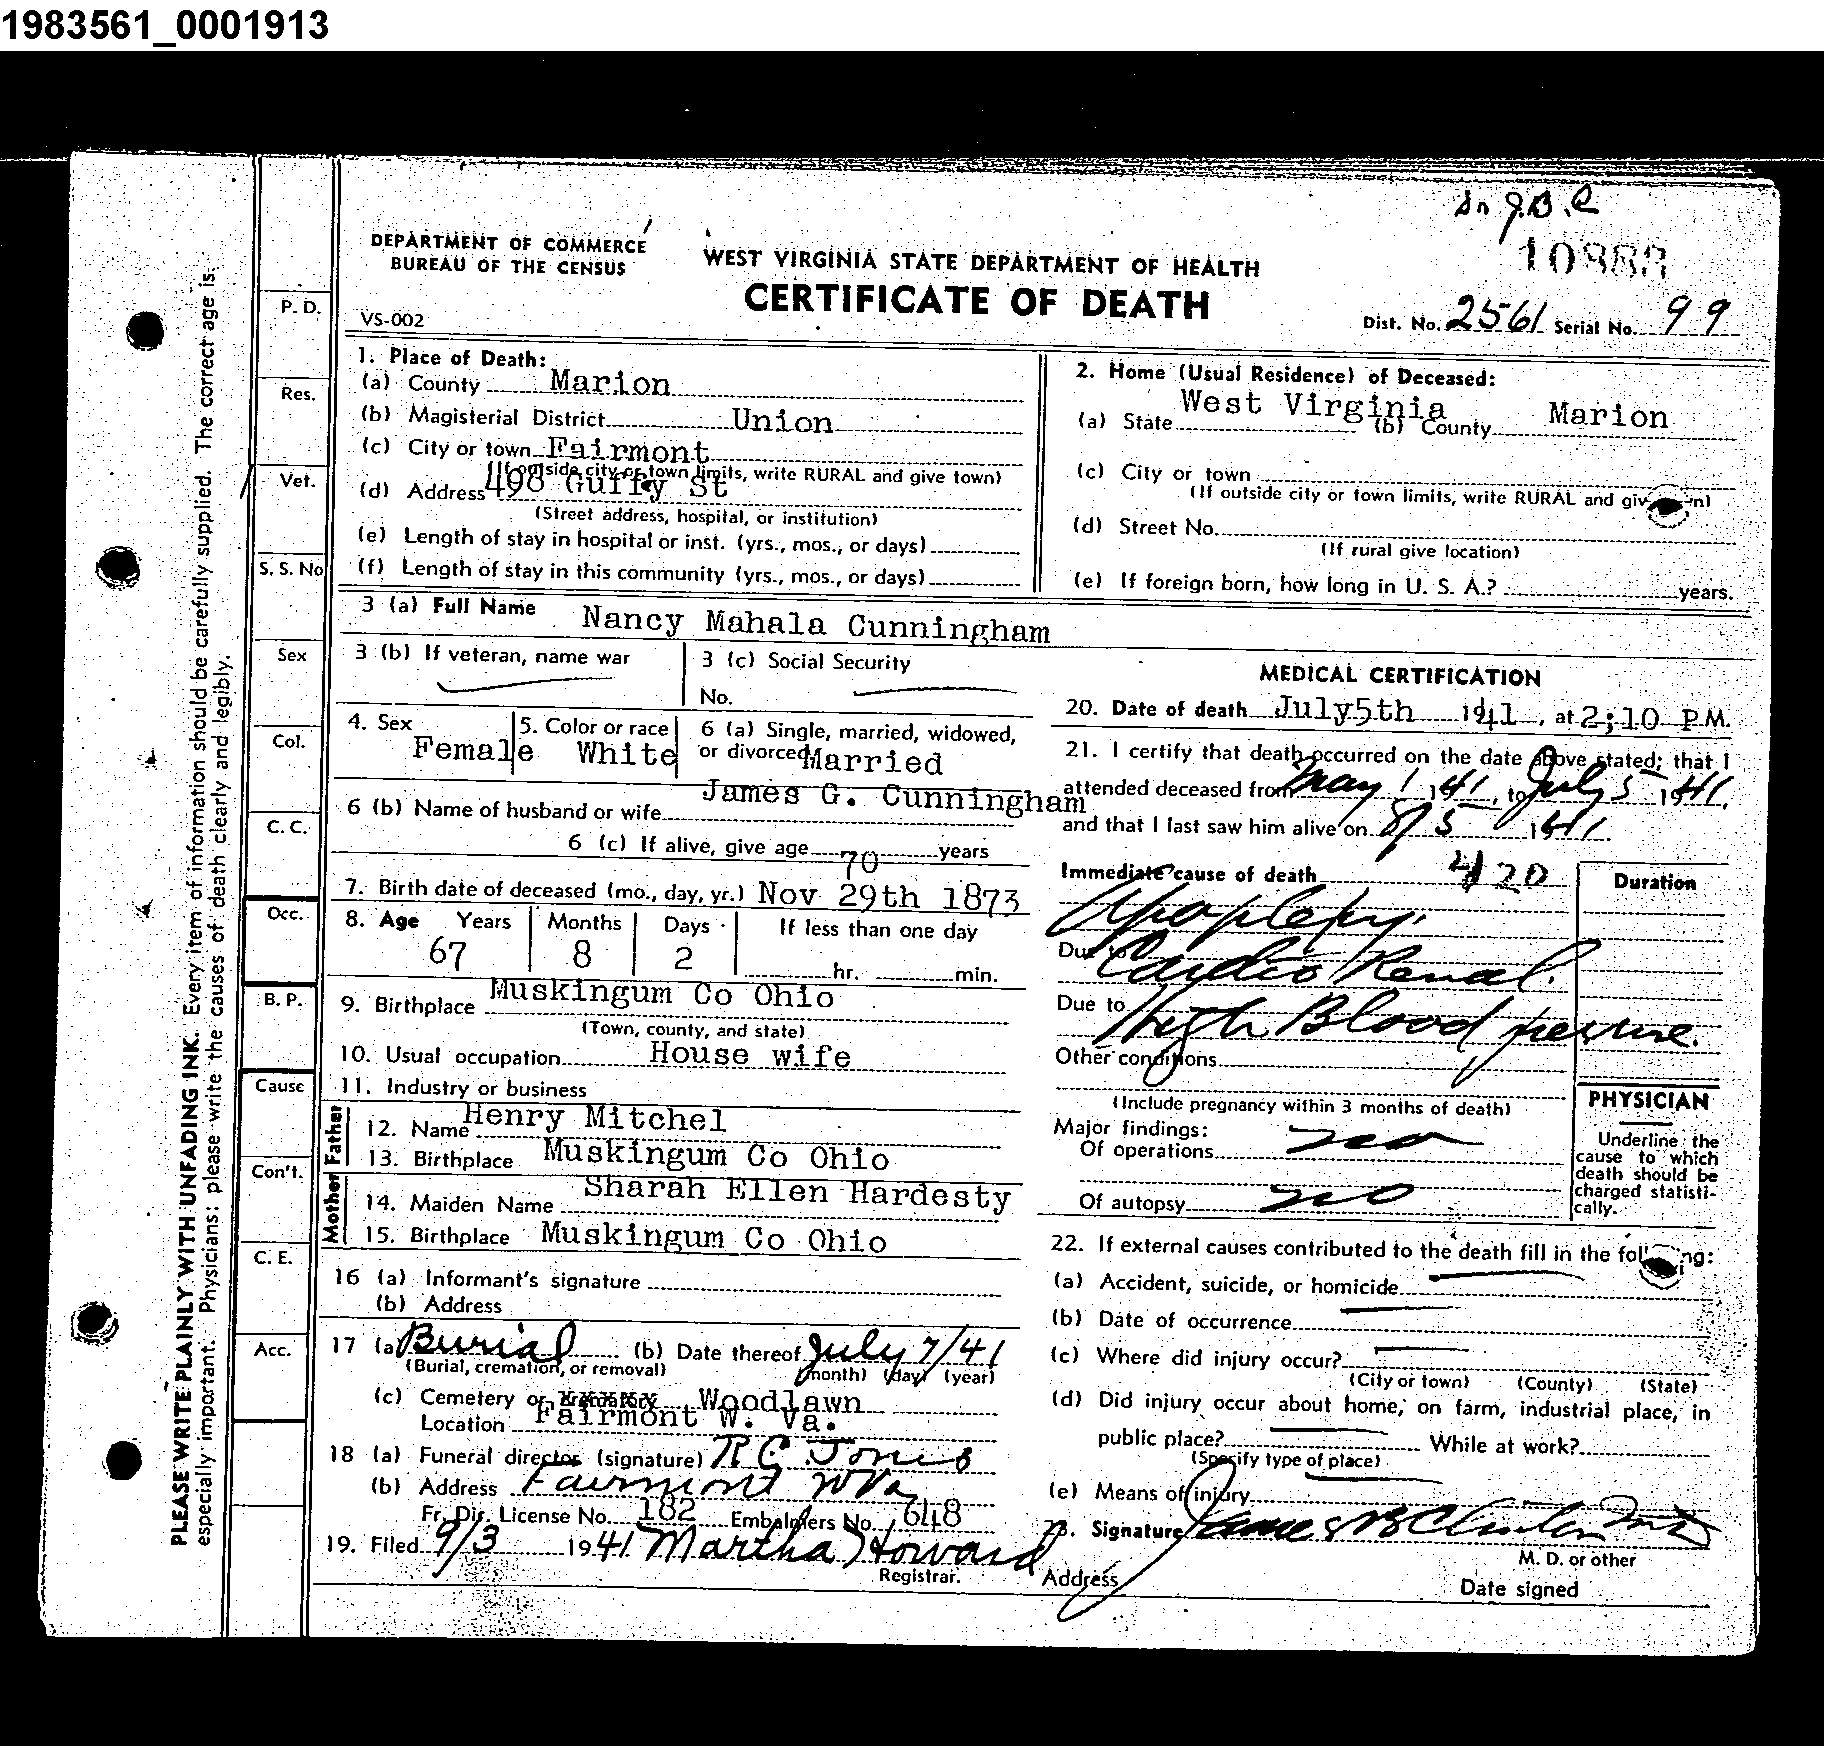 1983561_0001913
Dr J.B.C
DEPARTMENT OF COMMERCE
BUREAU OF THE CENSUS
WEST VIRGINIA STATE DEPARTMENT OF HEALTH
CERTIFICATE OF DEATH
VS-002
Dist. No. 2561 Serial No. 99
PLEASE WRITE PLAINLY WITH UNFADING INK. Every item of information should be carefully supplied. The correct age is
especially important. Physicians: please write the causes of death clearly and legibly.
P. D.
Res.
Vet.
S. S. No
Sex
Col.
C. C.
Occ.
B. P.
Cause
Con't.
C. E.
Acc.
1. Place of Death:
(a) County Marion
(b) Magisterial District Union
(c) City or town Fairmont
(If outside city or town limits, write RURAL and give town)
(d) Address 408 Guffy St
(Street address, hospital, or institution)
(e) Length of stay in hospital or inst. (yrs., mos., or days)
(f) Length of stay in this community (yrs., mos., or days)
2. Home (Usual Residence) of Deceased:
(a) State West Virginia (b) County Marion
(c) City or town
(If outside city or town limits, write RURAL and giv n)
(d) Street No.
(If rural give location)
(e) If foreign born, how long in U. S. A.? years.
3 (a) Full Name Nancy Mahala Cunningham
3 (b) If veteran, name war
3 (c) Social Security
No.
4. Sex Female
5. Color or race White
6 (a) Single, married, widowed,
or divorced Married
6 (b) Name of husband or wife James G. Cunningham
6 (c) If alive, give age 70 years
7. Birth date of deceased (mo., day, yr.) Nov 29th 1873
8. Age Years Months Days If less than one day
67 8 2 hr. min.
9. Birthplace Muskingum Co Ohio
(Town, county, and state)
10. Usual occupation House wife
11. Industry or business
Father
12. Name Henry Mitchel
13. Birthplace Muskingum Co Ohio
Mother
14. Maiden Name Sharah Ellen Hardesty
15. Birthplace Muskingum Co Ohio
16 (a) Informant's signature
(b) Address
17 (a) Burial (b) Date thereof July 7/41
(Burial, cremation, or removal) (month) (day) (year)
(c) Cemetery or Woodlawn
Location Fairmont W. Va.
18 (a) Funeral director (signature) R C Jones
(b) Address Fairmont W Va
Fr. Dir. License No. 182 Embalmers No. 648
19. Filed 9/3 1941 Martha Howard
Registrar.
MEDICAL CERTIFICATION
20. Date of death July 5th 1941, at 2;10 P.M.
21. I certify that death occurred on the date above stated; that I
attended deceased from May 1 1941, to July 5 1941.
and that I last saw him alive on 5 1941
Immediate cause of death 420
Duration
Apoplexy.
Due to Cardio Renal.
Due to High Blood pressure.
Other conditions
(Include pregnancy within 3 months of death)
Major findings:
Of operations no
Of autopsy no
PHYSICIAN
Underline the
cause to which
death should be
charged statisti-
cally.
22. If external causes contributed to the death fill in the fol ng:
(a) Accident, suicide, or homicide
(b) Date of occurrence
(c) Where did injury occur?
(City or town) (County) (State)
(d) Did injury occur about home, on farm, industrial place, in
public place? While at work?
(Specify type of place)
(e) Means of injury
Signature James B
M. D. or other
Address Date signed